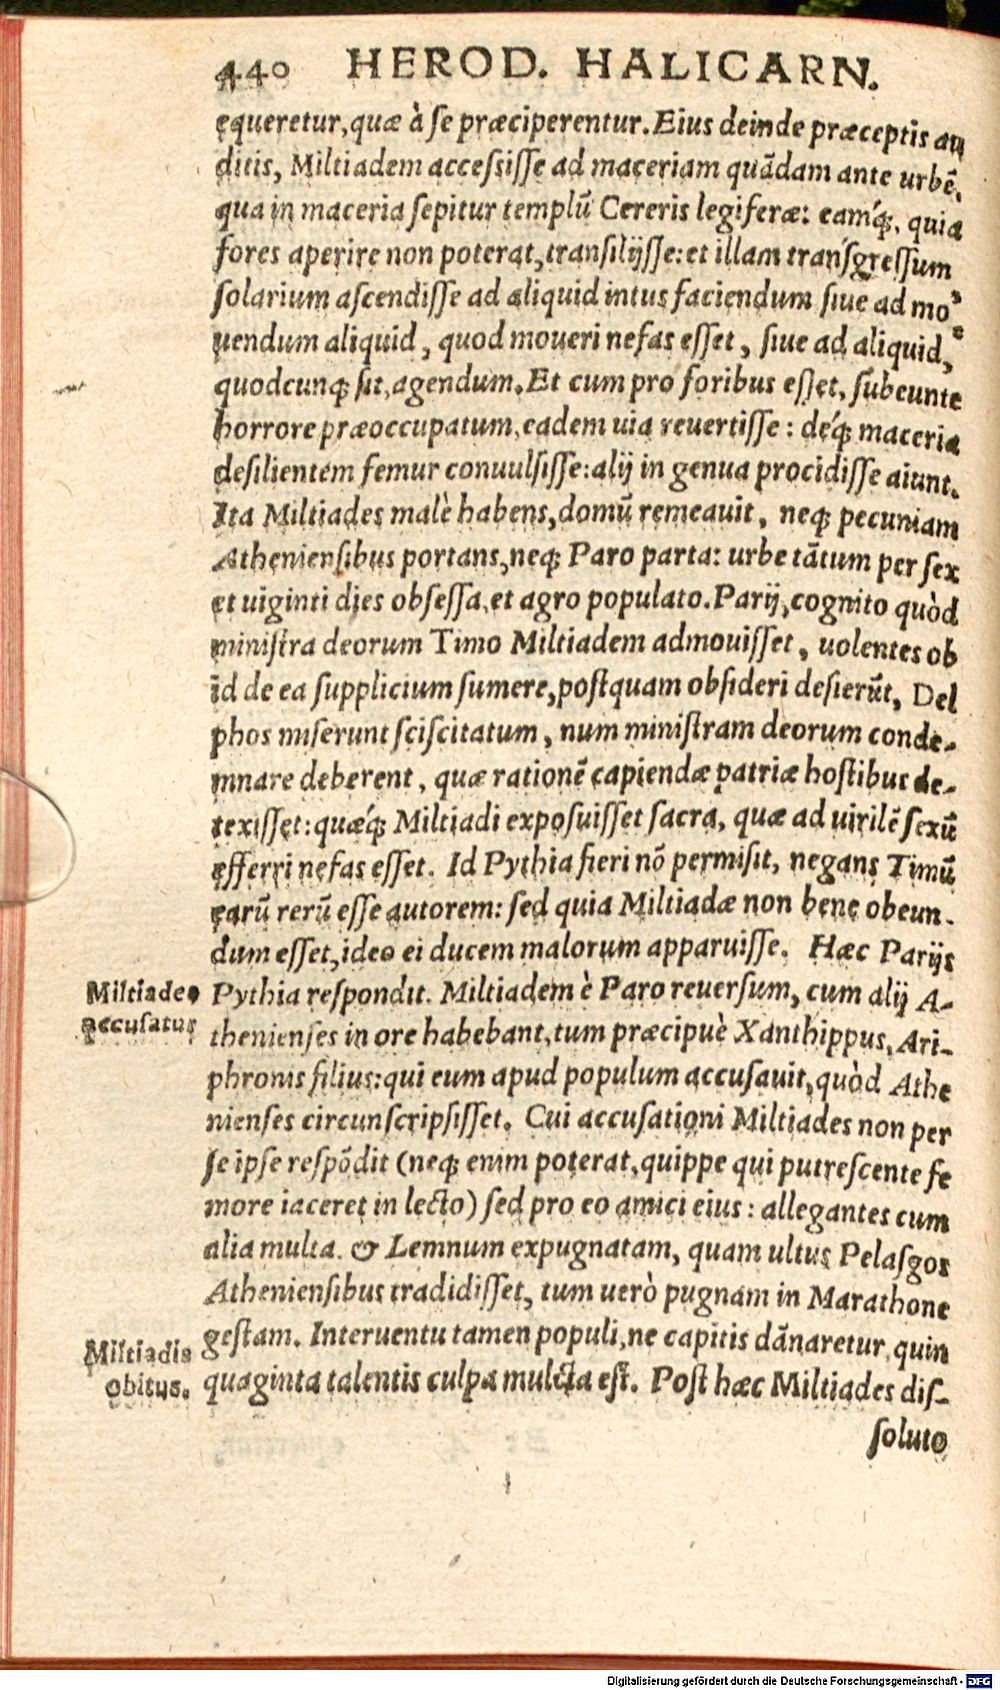 440 HEROD. HALICARN.
equeretur, quæ à se præciperentur. Eius deinde præceptis au
ditis, Miltiadem accessisse ad maceriam quãdam ante urbẽ,
qua in maceria sepitur templũ Cereris legiferæ: eamq́;, quia
fores aperire non poterat, transilijsse: et illam transgressum
solarium ascendisse ad aliquid intus faciendum siue ad mo
uendum aliquid, quod moueri nefas esset, siue ad aliquid,
quodcunq; sit, agendum. Et cum pro foribus esset, subeunte
horrore præoccupatum, eadem uia reuertisse: deq́; maceria
desilientem femur conuulsisse: alij in genua procidisse aiunt.
Ita Miltiades malè habens, domũ remeauit, neq; pecuniam
Atheniensibus portans, neq; Paro parta: urbe tãtum per sex
et uiginti dies obsessa, et agro populato. Parij, cognito quòd
ministra deorum Timo Miltiadem admouisset, uolentes ob
id de ea supplicium sumere, postquam obsideri desierũt, Del
phos miserunt sciscitatum, num ministram deorum conde-
mnare deberent, quæ rationẽ capiendæ patriæ hostibus de-
texisset: quæq́; Miltiadi exposuisset sacra, quæ ad uirilẽ sexũ
efferri nefas esset. Id Pythia fieri nõ permisit, negans Timũ
earũ rerũ esse autorem: sed quia Miltiadæ non bene obeun-
dum esset, ideo ei ducem malorum apparuisse. Hæc Parijs
Miltiades Pythia respondit. Miltiadem è Paro reuersum, cum alij A-
accusatus thenienses in ore habebant, tum præcipuè Xanthippus, Ari-
phronis filius: qui eum apud populum accusauit, quòd Athe
nienses circunscripsisset. Cui accusationi Miltiades non per
se ipse respõdit (neq; enim poterat, quippe qui putrescente fe
more iaceret in lecto) sed pro eo amici eius: allegantes cum
alia multa. & Lemnum expugnatam, quam ultus Pelasgos
Atheniensibus tradidisset, tum uerò pugnam in Marathone
gestam. Interuentu tamen populi, ne capitis dãnaretur, quin
Miltiadis
quaginta talentis culpa mulcta est. Post hæc Miltiades dis-
obitus.
soluto
Digitalisierung gefördert durch die Deutsche Forschungsgemeinschaft - DFG